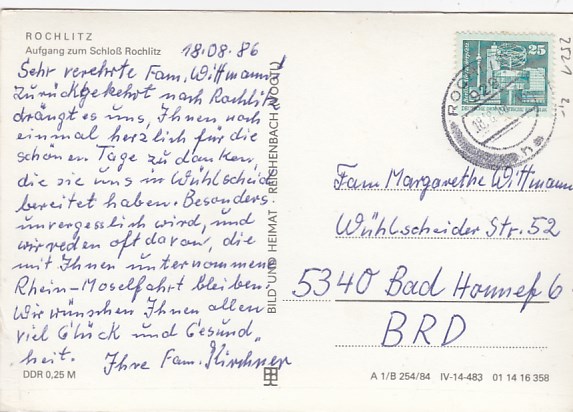 ROCHLITZ
Aufgang zum Schloß Rochlitz
18.08.86
Sehr verehrte Fam. Wittmann!
Zurückgekehrt nach Rochlitz
drängt es uns, Ihnen noch
einmal herzlich für die
schönen Tage zu danken,
die sie uns in Wühlscheid
bereitet haben. Besonders
unvergesslich wird, und
wir reden oft davon, die
mit Ihnen unternommene
Rhein-Moselfahrt bleiben.
Wir wünschen Ihnen allen
viel Glück und Gesund
heit. Ihre Fam. Kirchner
DDR 0,25 M
BILD UND HEIMAT REICHENBACH (VOGTL)
25
2521
Fam Margarethe Wittmann
Wühlscheider Str. 52
5340 Bad Honnef 6
BRD
A 1/B 254/84 IV-14-483 01 14 16 358